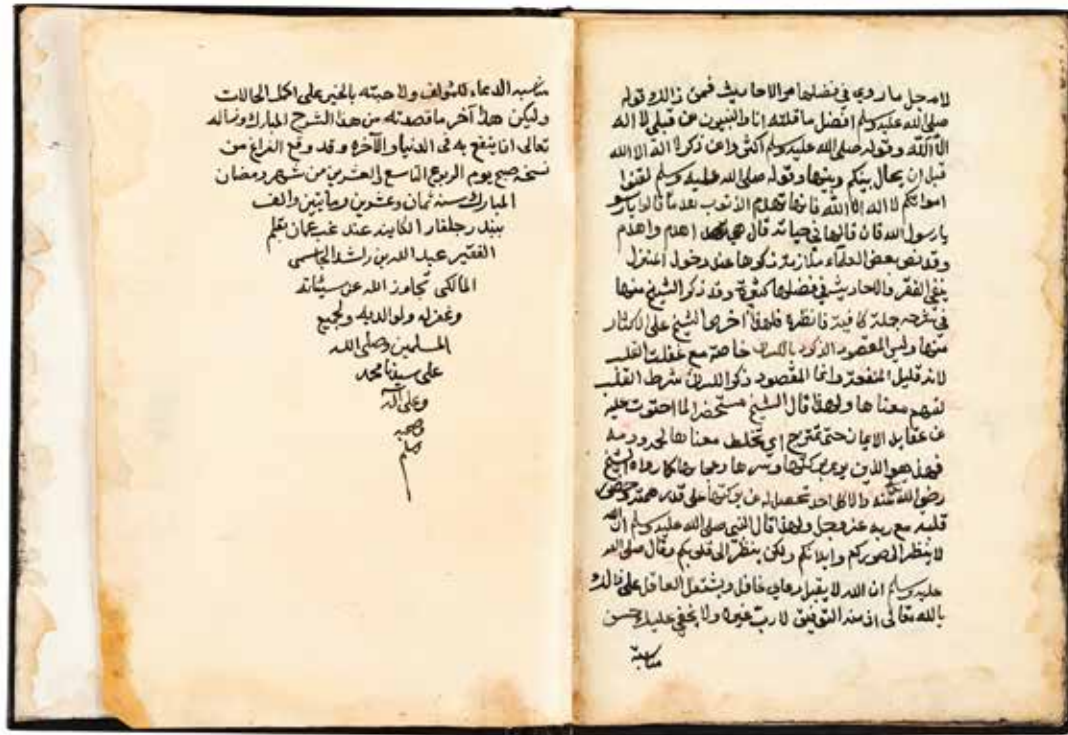 لاجل ما روي في فضلها من الاحاديث فمن ذالك قوله
صلى الله عليه وسلم افضل ما قلته انا والنبيون من قبلي لا اله
الا الله وقوله صلى الله عليه وسلم اكثروا من ذكر لا اله الا الله
قبل ان يحال بينكم وبينها وقوله صلى الله عليه وسلم لقنوا
امواتكم لا اله الا الله فانها تهدم الذنوب هدما قالوا
يا رسول الله فان قالها في حياته قال هي اهدم واهدم
وقد نص بعض العلماء ذكرها عند دخول المنزل
ينفي الفقر والاحاديث في فضلها كثيرة وقد ذكر الشيخ منها
في شرحه جملة كافية فانظره فلهذا الشيخ على الاكثار
منها وليس المقصود الذكر باللسان خاصة مع غفلت القلب
لانه قليل المنفعة وانما المقصود ذكر اللسان شرط القلب
لفهم معناها ولهذا قال الشيخ مستحضر الما احتوت عليه
من عقايد الايمان حتى تمتزج اي تختلط معناها لحمه ودمه
فهذا هو الذي يرى بركتها وسرها الشيخ
رضي الله عنه والا كل احد تحصل له من بركتها على قدر همته وحضور
قلبه مع ربه عز وجل ولهذا قال النبي صلى الله عليه وسلم ان الله
لا ينظر الى صوركم وابدانكم ولكن ينظر الى قلوبكم وقال صلى الله
عليه وسلم ان الله لا يقبل دعاي غافل ويشتغل العاقل على ذالك
بالله تعالى اذ منه التوفيق لا رب غيره ولا يخفى عليك حسن
مناسبة
مناسبه الدعاء للمؤلف ولاحبته بالخير على اكمل الحالات
وليكن هذا آخر ما قصدته من هذا الشرح المبارك ونساله
تعالى ان ينفع به في الدنيا والآخره وقد وقع الفراغ من
نسخه صبح يوم الربوع التاسع والعشرين من شهر رمضان
المبارك سنه ثمان وعشرين ومايتين والف
ببندر جلفار الكاينه عند غب عمان بقلم
الفقير عبد الله بن راشد
المالكي تجاوز الله عن سيئاته
وغفر له ولوالديه ولجميع
المسلمين وصلى الله
على سيدنا محمد
وعلى آله
وصحبه
وسلم